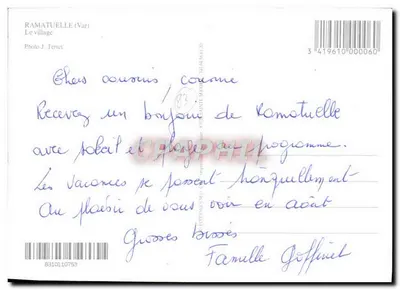 RAMATUELLE (Var)
Le village
3 419610 000060
Chers cousins, cousine
Recevez un bonjour de Ramatuelle
avec soleil et plage au programme.
Les vacances se passent tranquillement
Au plaisir de vous voir en août
Grosses bises
Famille Goffinet
8310110750